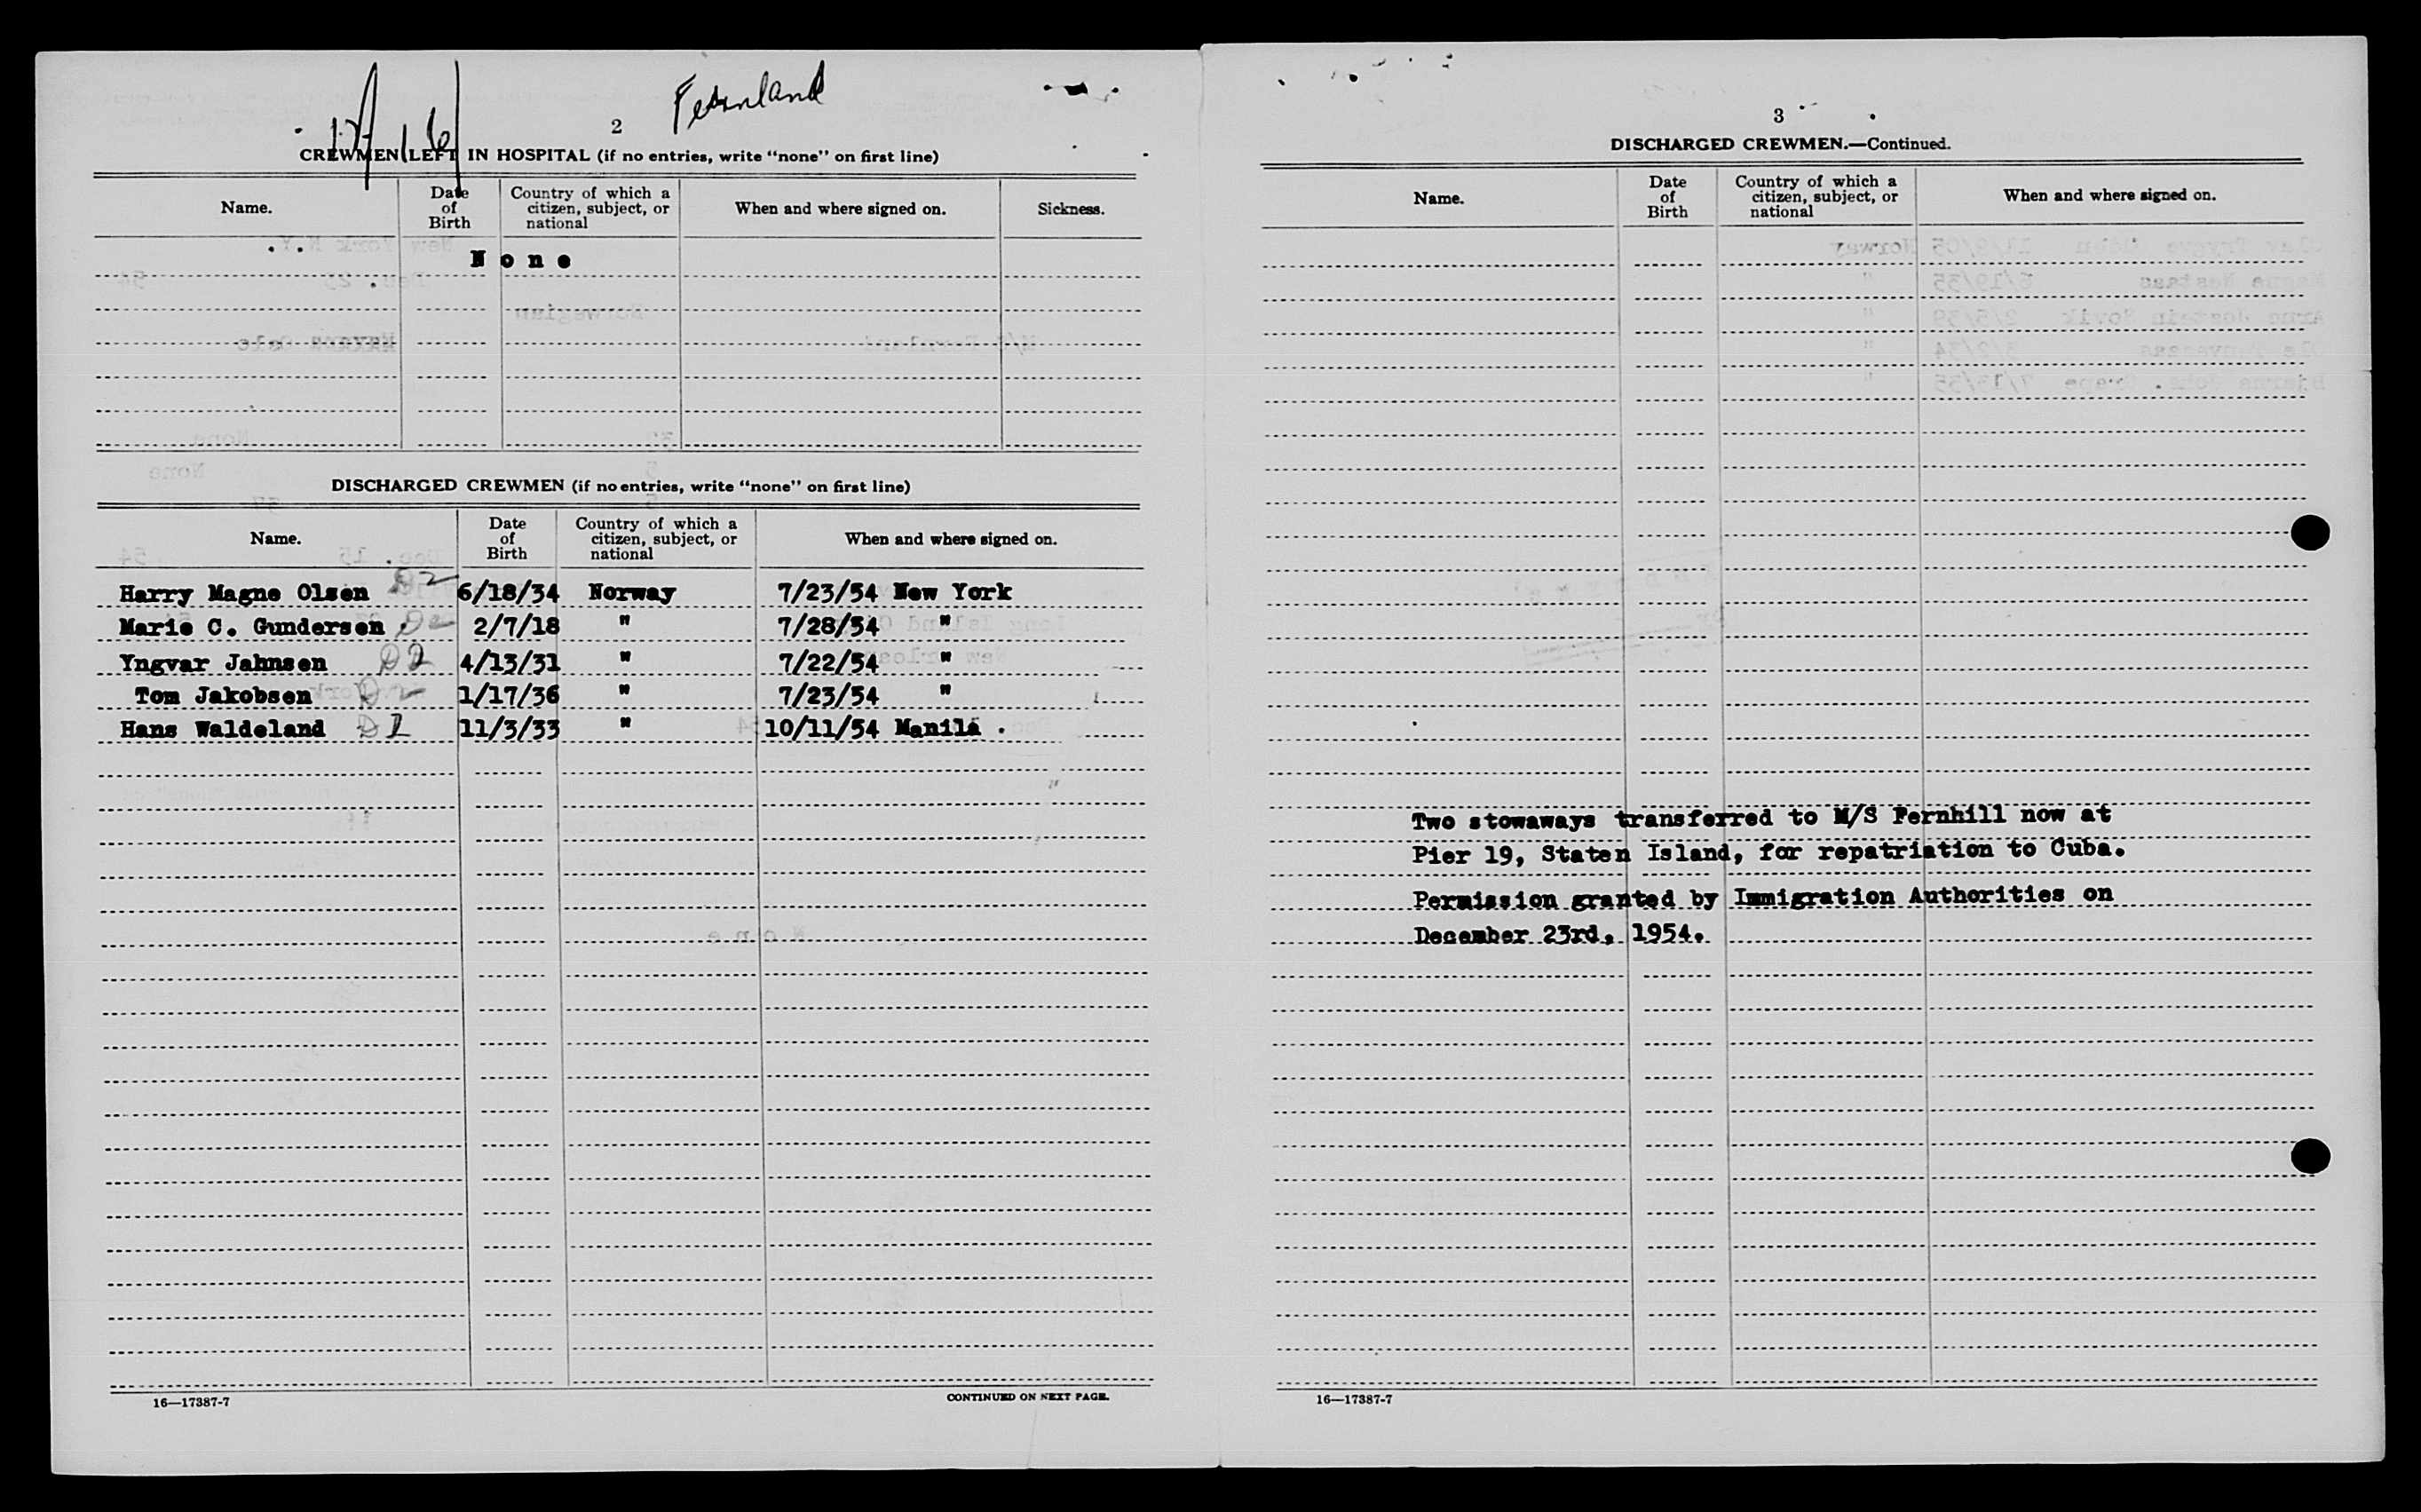 Fernland
2
CREWMEN LEFT IN HOSPITAL (if no entries, write "none" on first line)
Name. Date of Birth Country of which a citizen, subject, or national When and where signed on. Sickness.
None
DISCHARGED CREWMEN (if no entries, write "none" on first line)
Name. Date of Birth Country of which a citizen, subject, or national When and where signed on.
Harry Magne Olsen D2 6/18/34 Norway 7/23/54 New York
Marie C. Gundersen 2/7/18 " 7/28/54 "
Yngvar Jahnsen D2 4/13/31 " 7/22/54 "
Tom Jakobsen D2 1/17/36 " 7/23/54 "
Hans Waldeland D1 11/3/33 " 10/11/54 Manila .
16—17387-7
CONTINUED ON NEXT PAGE.
3
DISCHARGED CREWMEN.—Continued.
Name. Date of Birth Country of which a citizen, subject, or national When and where signed on.
Two stowaways transferred to M/S Fernhill now at
Pier 19, Staten Island, for repatriation to Cuba.
Permission granted by Immigration Authorities on
December 23rd, 1954.
16—17387-7